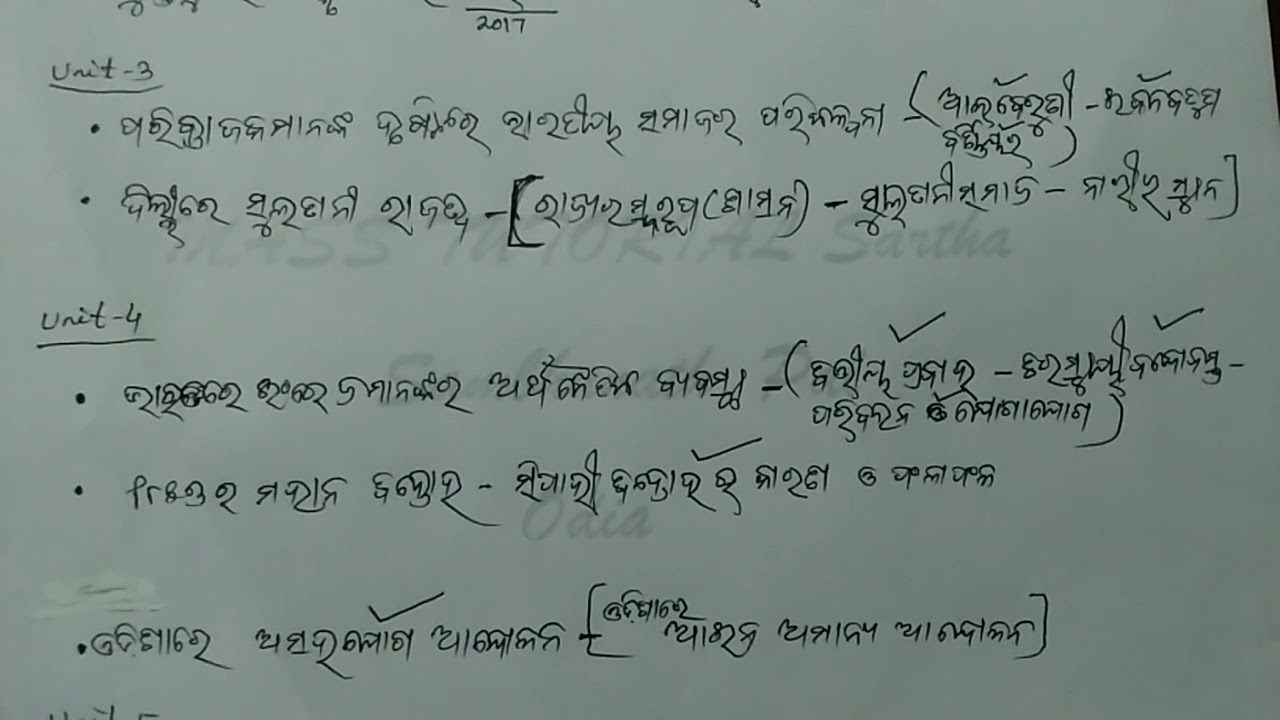 2017
Unit-3
• ପରିବ୍ରାଜକମାନଙ୍କ ଦୃଷ୍ଟିରେ ଭାରତୀୟ ସମାଜର ପରିକଳ୍ପନା - (ଆଲବେରୁନୀ - ଇବନବତୁତା
ବର୍ଣ୍ଣିୟର)
• ଦିଲ୍ଲୀରେ ସୁଲତାନୀ ରାଜତ୍ୱ - [ରାଜ୍ୟର ସ୍ୱରୂପ (ଶାସନ) - ସୁଲତାନୀ ସମାଜ - ନାରୀର ସ୍ଥାନ]
MASS TUTORIAL Sartha
Unit-4
• ଭାରତରେ ଇଂରେଜମାନଙ୍କର ଅର୍ଥନୈତିକ ବ୍ୟବସ୍ଥା - (ବିଭୀୟ ପ୍ରବାହ - ଚିରସ୍ଥାୟୀ ବନ୍ଦୋବସ୍ତ -
ପରିବହନ ଓ ଯୋଗାଯୋଗ)
• ୧୮୫୭ର ମହାନ ବିଦ୍ରୋହ - ସିପାହୀ ବିଦ୍ରୋହ ର କାରଣ ଓ ଫଳାଫଳ
Odia
• ଓଡ଼ିଶାରେ ଅସହଯୋଗ ଆନ୍ଦୋଳନ - [ଓଡ଼ିଶାରେ ଆଇନ ଅମାନ୍ୟ ଆନ୍ଦୋଳନ]